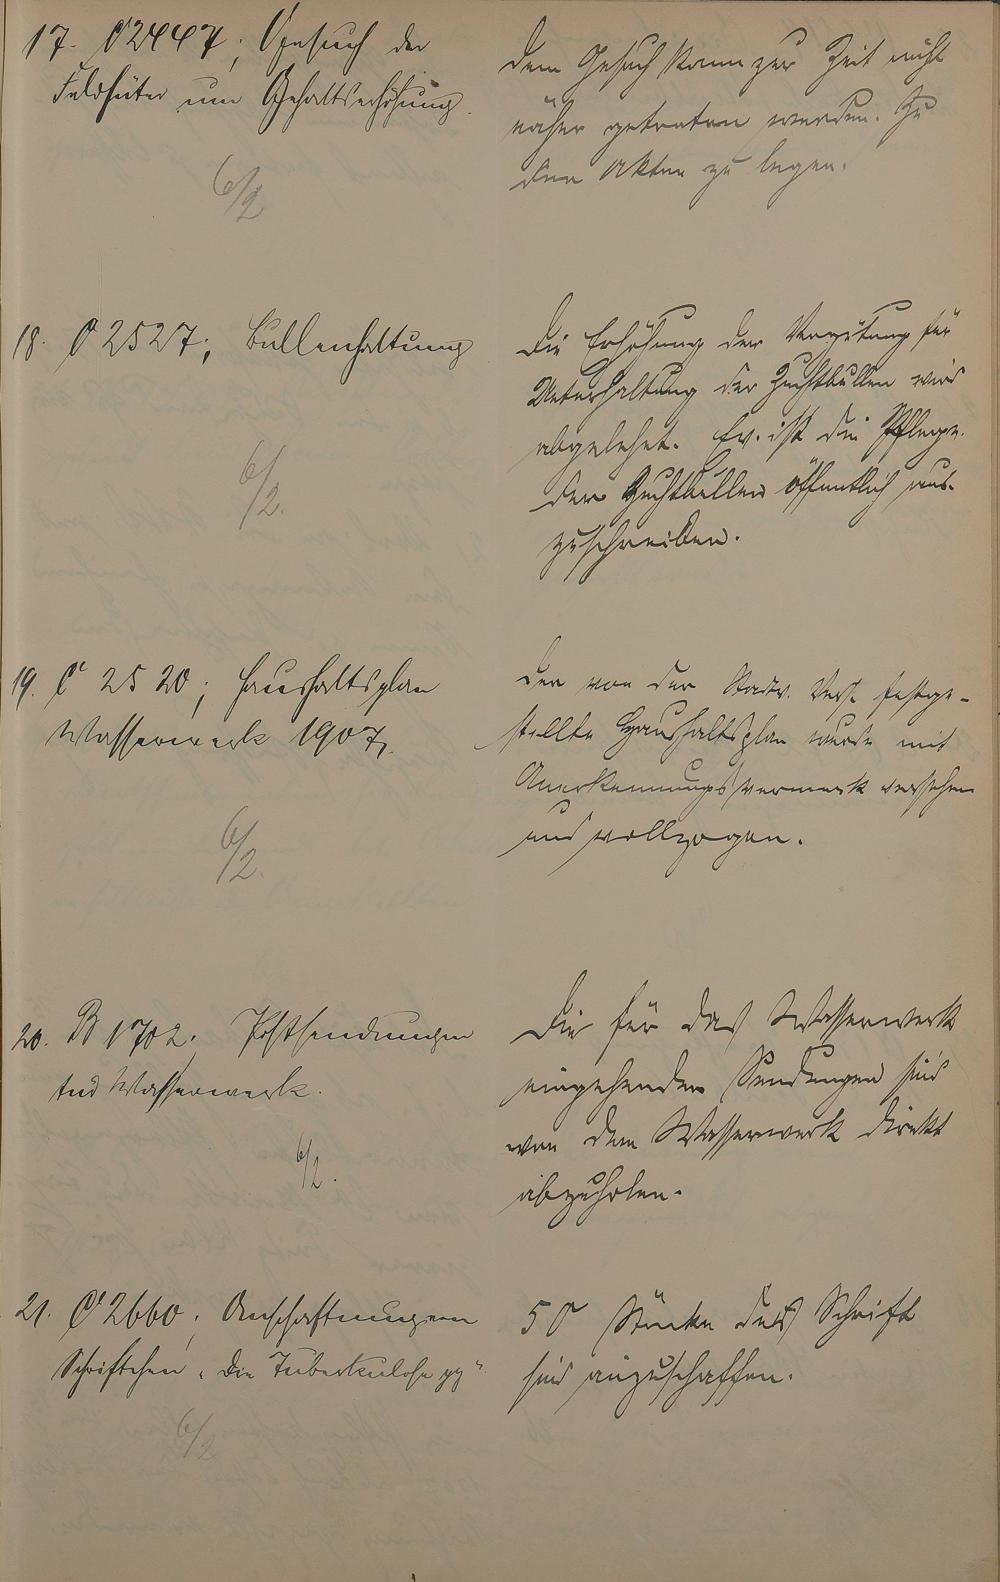 17. C 2447; Gesuch der
Feldhüter um Gehaltserhöhung.
6/2
Dem Gesuch kann zur Zeit nicht
näher getreten werden. Zu
den Akten zu legen.
18. C 2527; Bullenhaltung
6/2.
Die Erhöhung der Vergütung für
Unterhaltung der Zuchtbullen wird
abgelehnt. Ev. ist die Pflege
der Zuchtbullen öffentlich aus-
zuschreiben.
19. C 2520; Haushaltsplan
Wasserwerk 1907.
6/2.
Der von der Stadtv. Vers. festge-
stellte Haushaltsplan wurde mit
Anerkennungsvermerk versehen
und vollzogen.
20. B 1702; Postsendungen
Wasserwerk.
6/2.
Die für das Wasserwerk
eingehenden Sendungen sind
von dem Wasserwerk direkt
abzuholen.
21. C 2660; Anschaffungen
Schriftchen „Die Tuberkulose pp"
6/2
50 Stücke des Schrift
sind anzuschaffen.